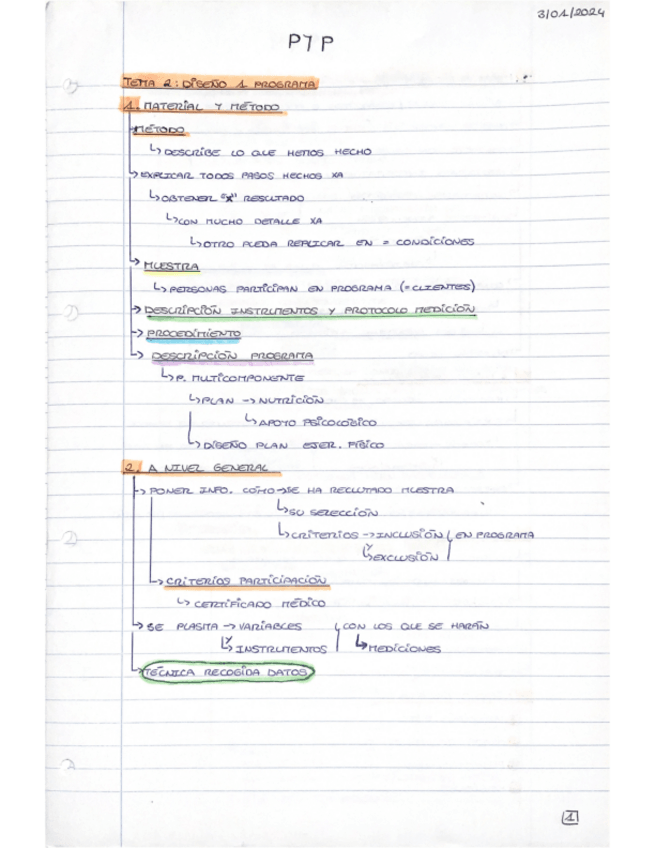 3/01/2024
PYP
TEMA 2: DISEÑO 1 PROGRAMA
1. MATERIAL Y MÉTODO
MÉTODO
↳ DESCRIBE LO QUE HEMOS HECHO
↳ EXPLICAR TODOS PASOS HECHOS XA
↳ OBTENER "X" RESULTADO
↳ CON MUCHO DETALLE XA
↳ OTRO PUEDA REPLICAR EN = CONDICIONES
↳ MUESTRA
↳ PERSONAS PARTICIPAN EN PROGRAMA (= CLIENTES)
→ DESCRIPCIÓN INSTRUMENTOS Y PROTOCOLO MEDICIÓN
→ PROCEDIMIENTO
↳ DESCRIPCIÓN PROGRAMA
↳ P. MULTICOMPONENTE
↳ PLAN → NUTRICIÓN
↳ APOYO PSICOLÓGICO
↳ DISEÑO PLAN EJER. FÍSICO
2. A NIVEL GENERAL
→ PONER INFO. CÓMO → SE HA RECLUTADO MUESTRA
↳ SU SELECCIÓN
↳ CRITERIOS → INCLUSIÓN EN PROGRAMA
↳ Y EXCLUSIÓN
↳ CRITERIOS PARTICIPACIÓN
↳ CERTIFICADO MÉDICO
↳ SE PLASMA → VARIABLES CON LOS QUE SE HARÁN
↳ Y INSTRUMENTOS ↳ MEDICIONES
↳ TÉCNICA RECOGIDA DATOS
1